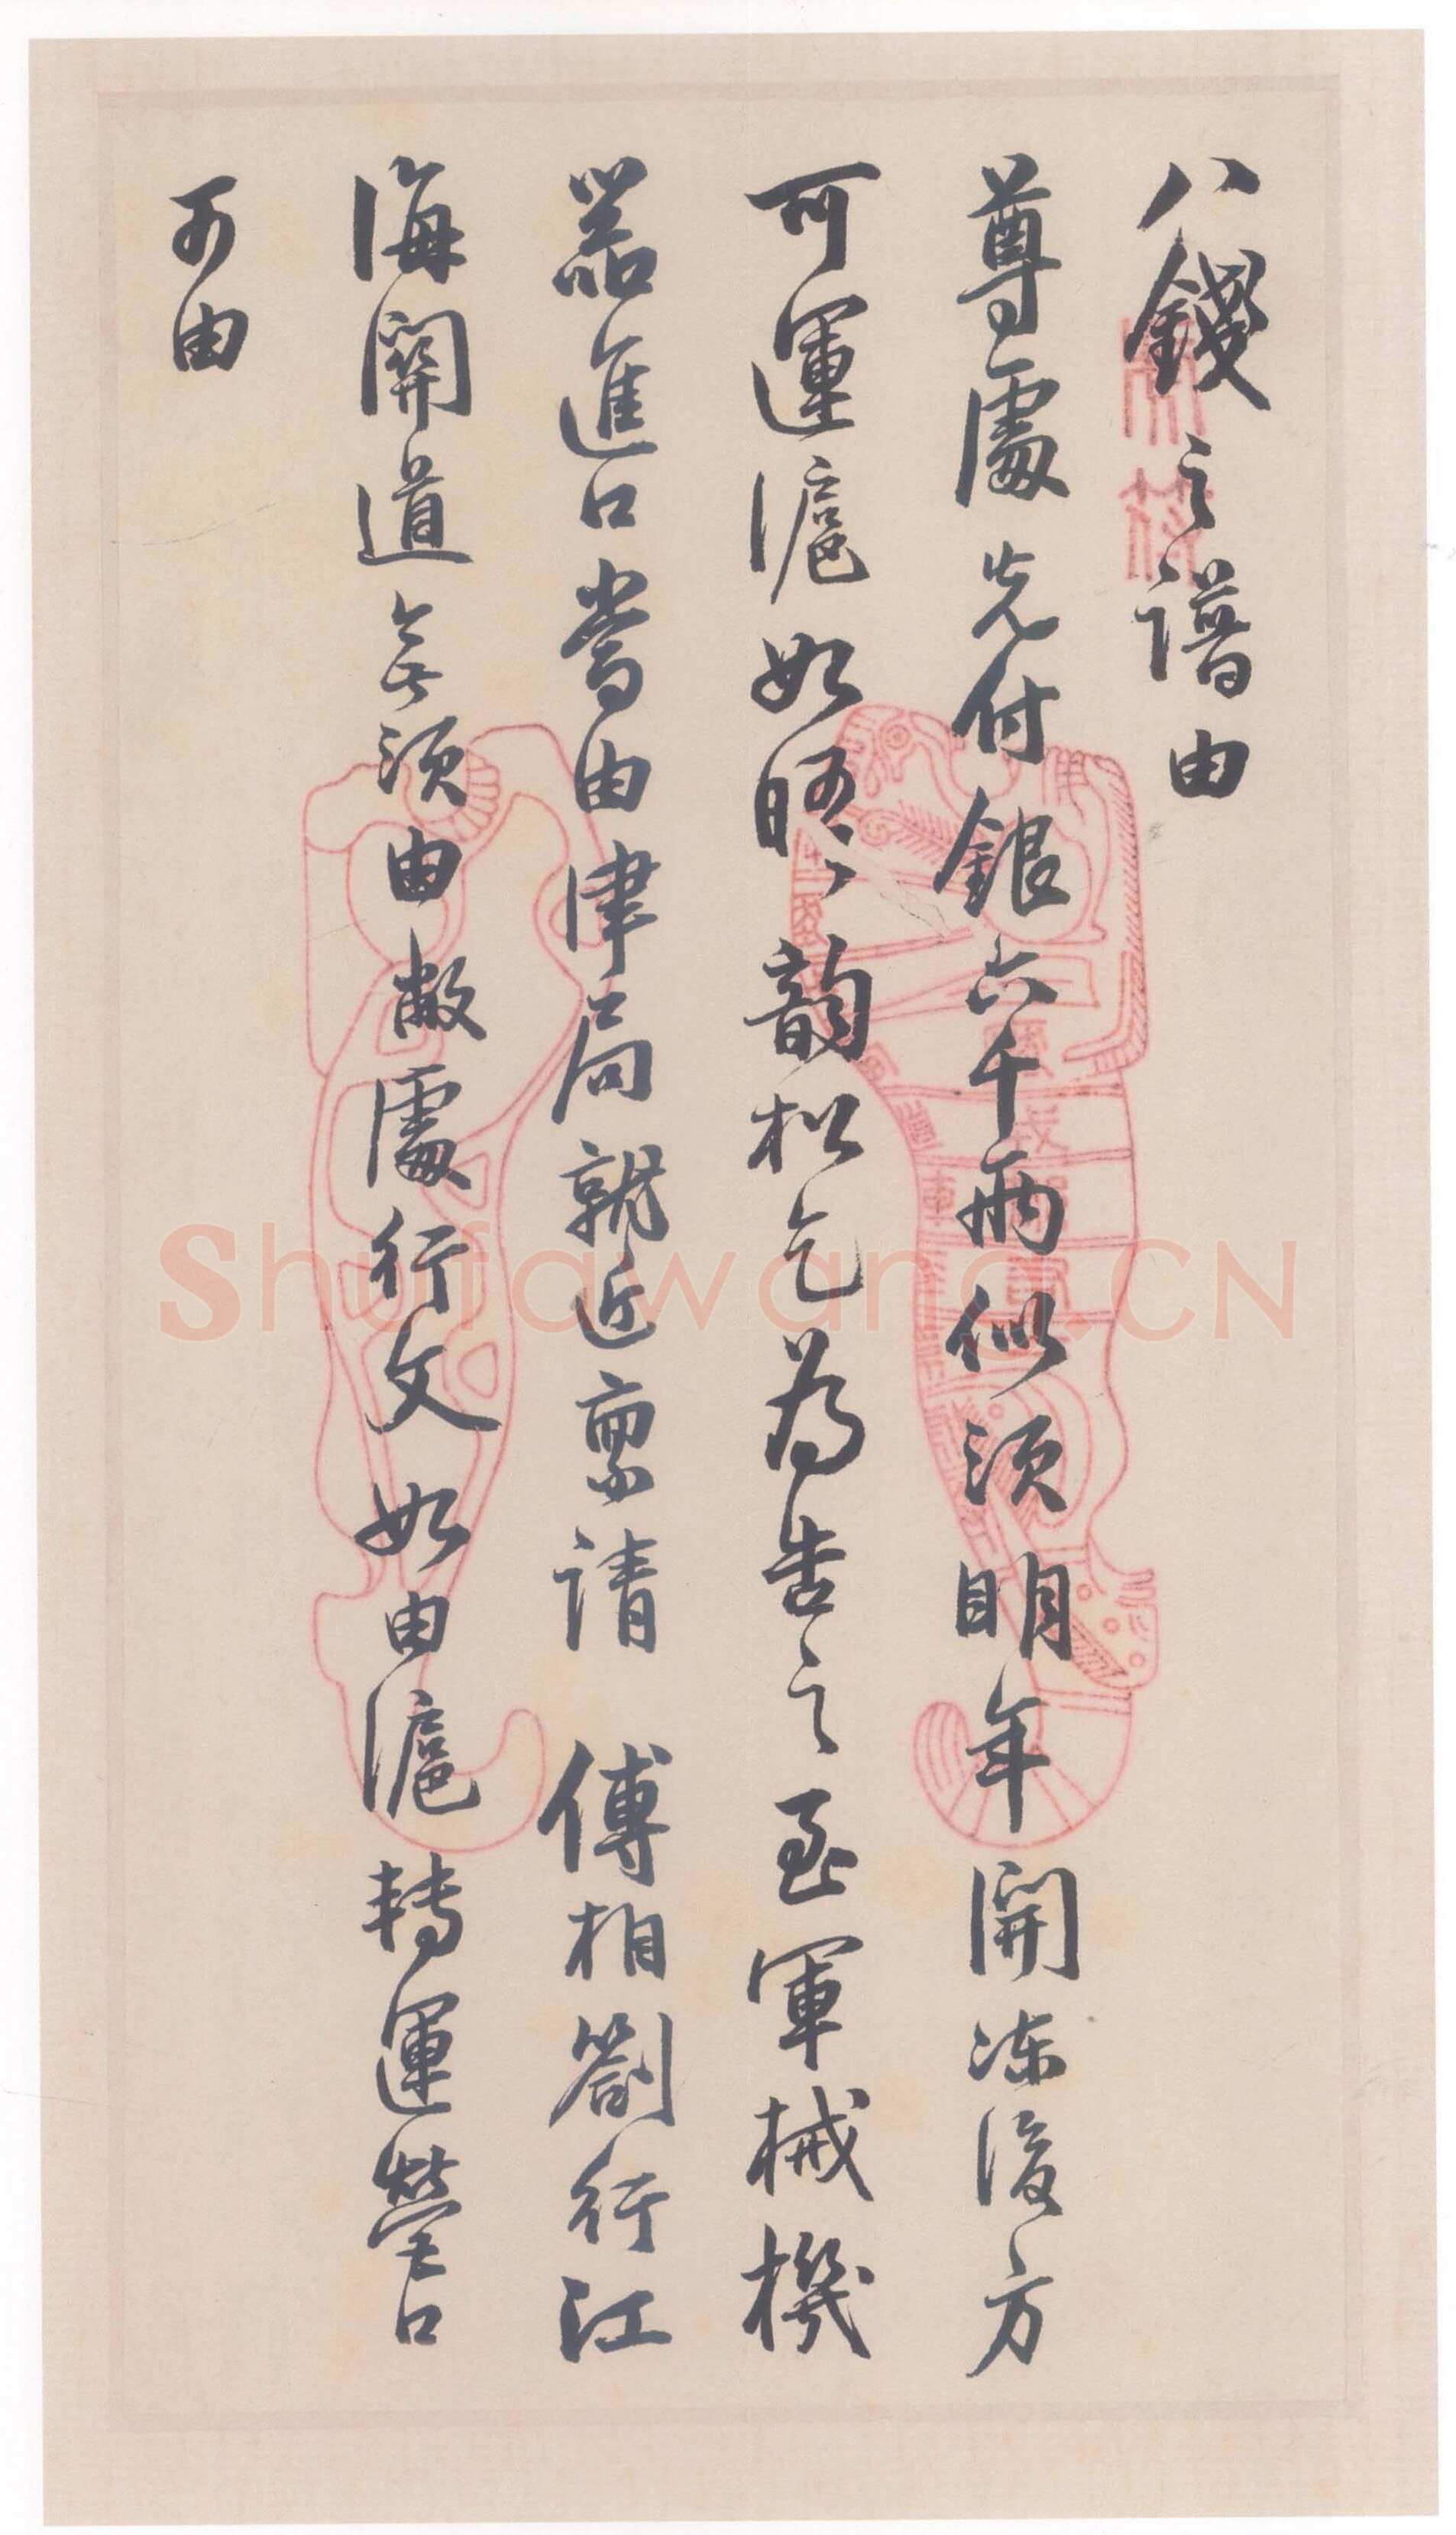 八錢之譜由
尊處先付銀六千兩似須明年開凍後方
可運滬如晤韵松乞為告之至軍械機
器進口嘗由津局就近稟請 傅相劄行江
海關道無須由敝處行文如由滬轉運營口
可由
Shufawang.CN